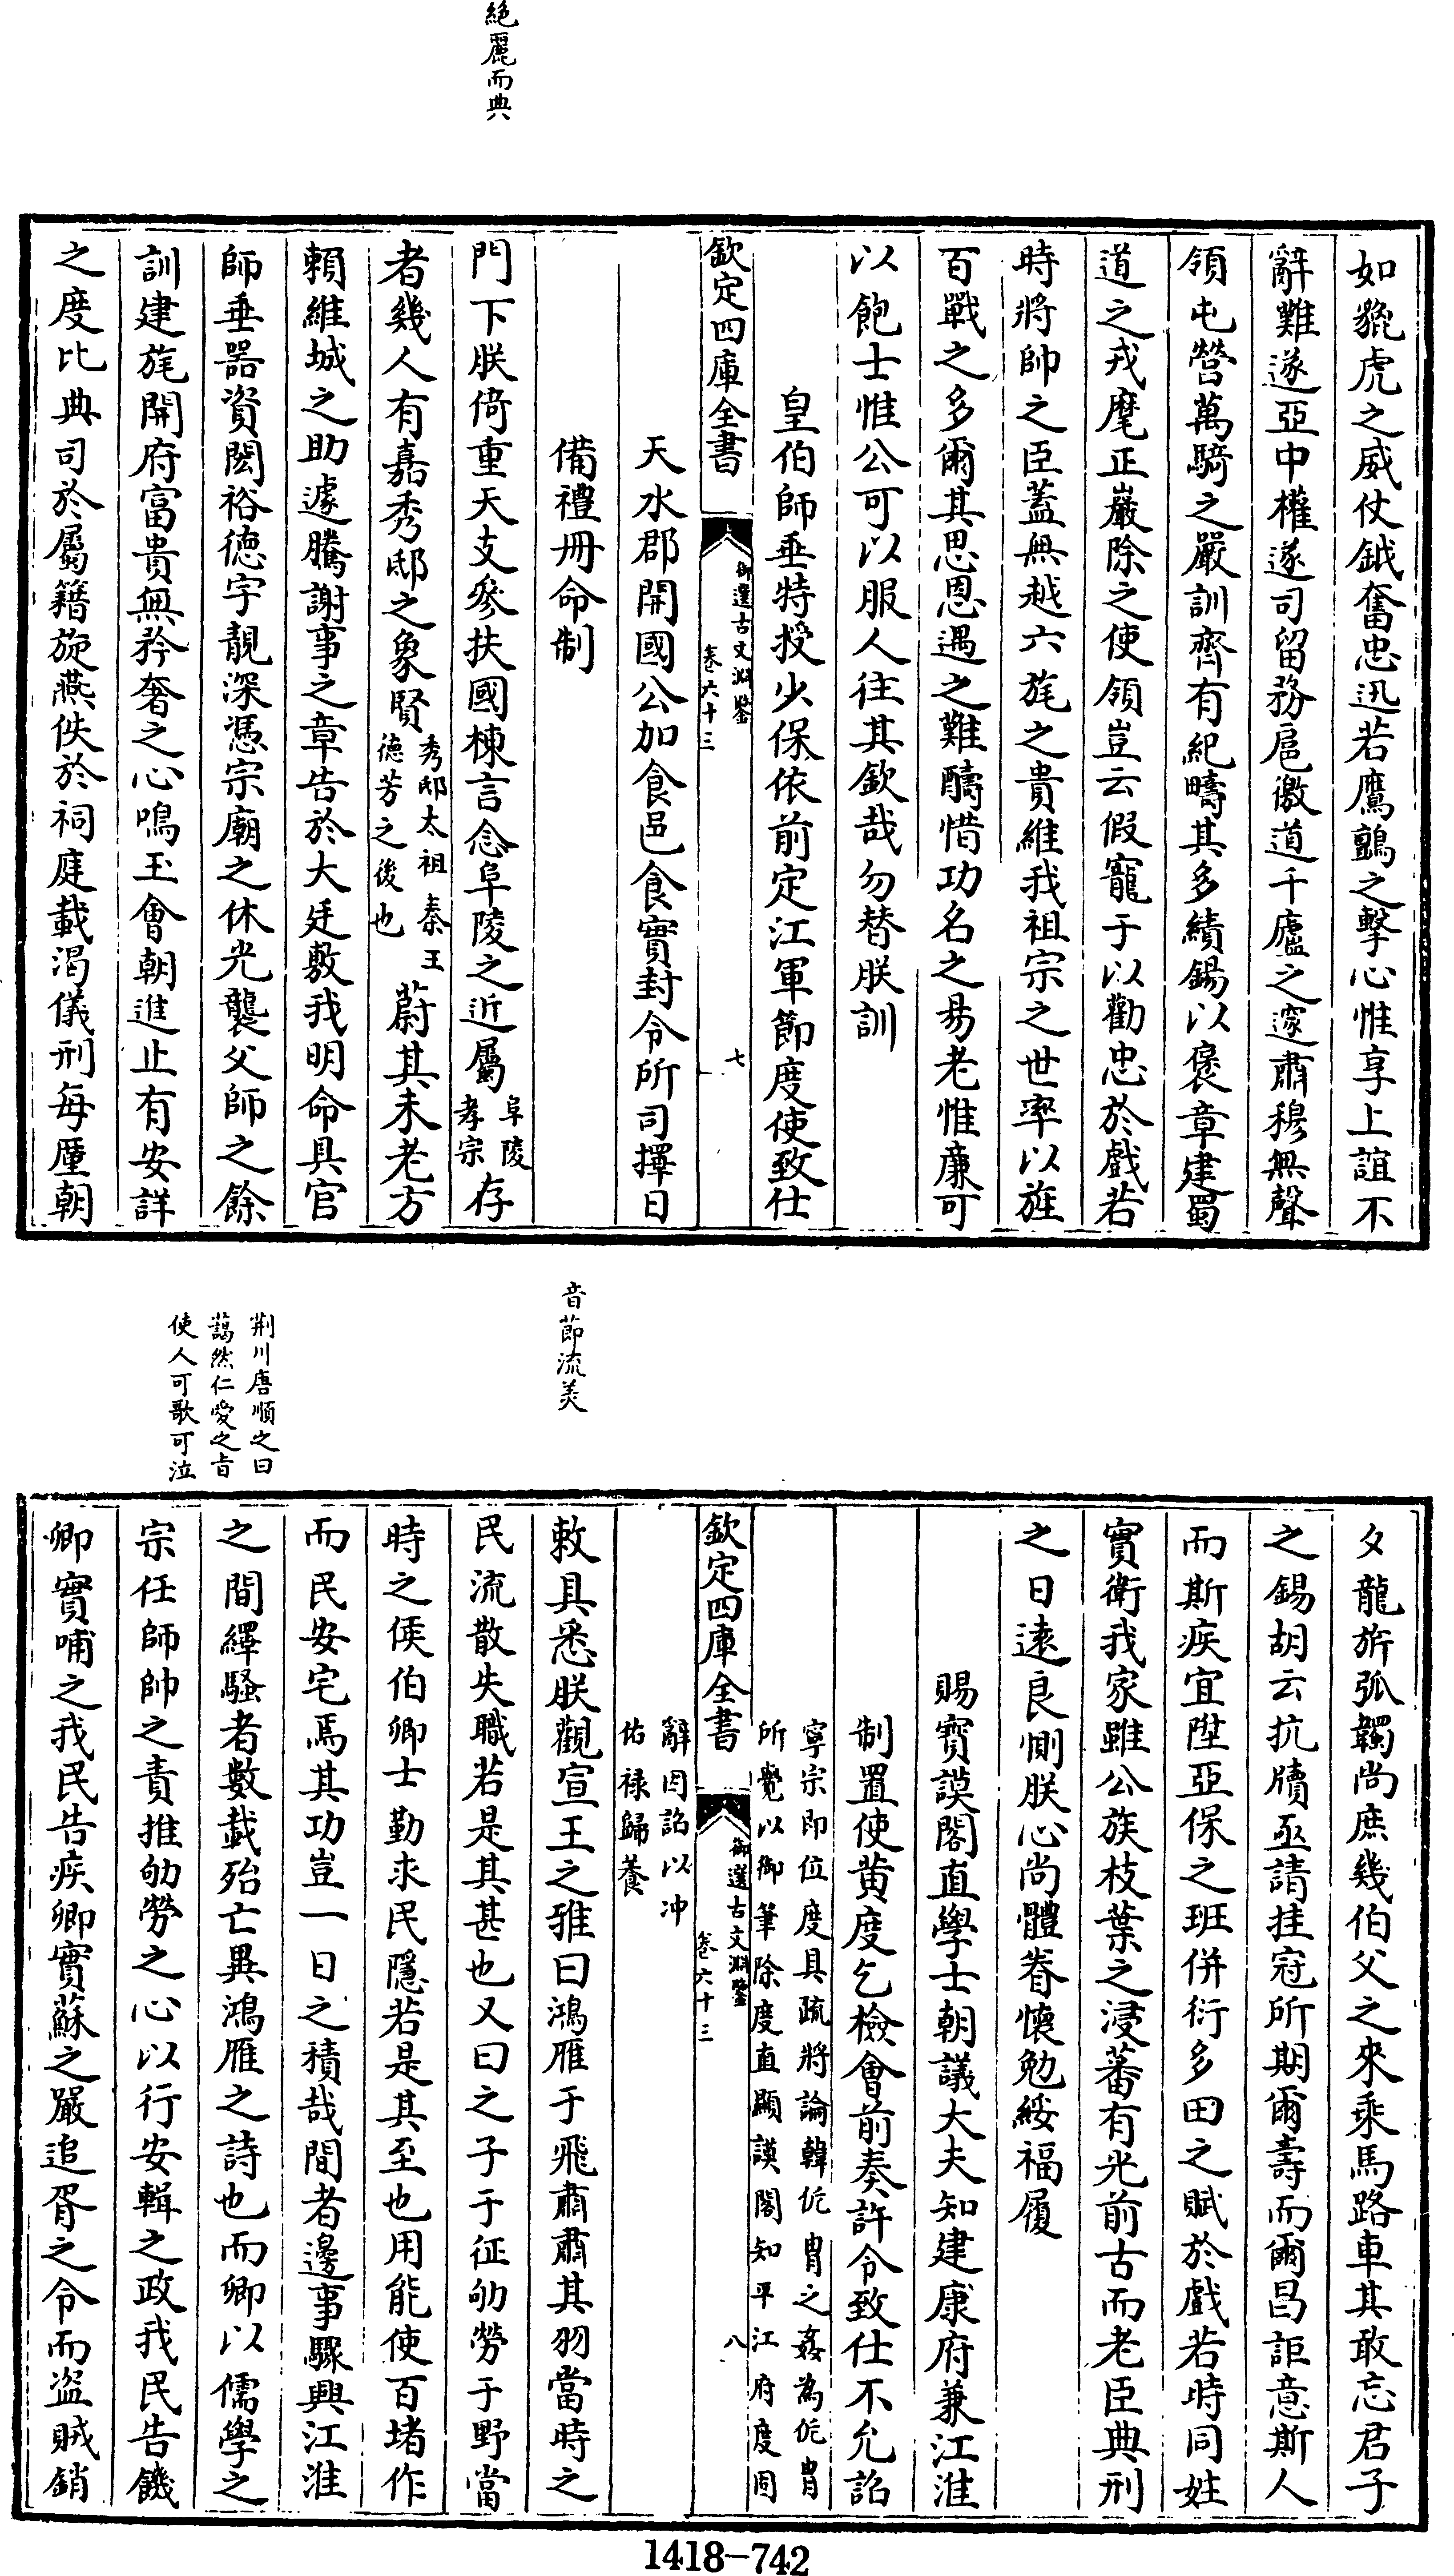 絶麗而典
如貔虎之威仗鉞奮忠迅若鷹鸇之擊心惟享上誼不
辭難遂亞中權遂司留務扈徼道千廬之邃肅穆無聲
領屯營萬騎之嚴訓齊有紀疇其多績錫以褒章建蜀
道之戎麾正巖除之使領豈云假寵于以勸忠於戲若
時將帥之臣蓋無越六旄之貴維我祖宗之世率以旌
百戰之多爾其思恩遇之難酬惜功名之易老惟廉可
以飽士惟公可以服人往其欽哉勿替朕訓
皇伯師垂特授少保依前定江軍節度使致仕
欽定四庫全書
御選古文淵鑒
卷六十三
七
天水郡開國公加食邑食實封令所司擇日
備禮冊命制
門下朕倚重天支參扶國棟言念阜陵之近屬阜陵孝宗存
者幾人有嘉秀邸之象賢秀邸太祖秦王德芳之後也蔚其未老方
賴維城之助遽騰謝事之章告於大廷敷我明命具官
師垂器資閎裕德宇靚深憑宗廟之休光襲父師之餘
訓建旄開府富貴無矜奢之心鳴玉會朝進止有安詳
之度比典司於屬籍旋燕佚於祠庭載渴儀刑每厪朝
音節流美
荆川唐順之曰
藹然仁愛之旨
使人可歌可泣
夕龍旂弧韣尚庶幾伯父之來乘馬路車其敢忘君子
之錫胡云抗牘亟請挂冠所期爾壽而爾昌詎意斯人
而斯疾宜陞亞保之班併衍多田之賦於戲若時同姓
實衛我家雖公族枝葉之浸蕃有光前古而老臣典刑
之日遠良惻朕心尚體眷懷勉綏福履
賜寶謨閣直學士朝議大夫知建康府兼江淮
制置使黃度乞檢會前奏許令致仕不允詔
寧宗即位度具疏將論韓侂胄之姦為侂胄
所覺以御筆除度直顯謨閣知平江府度固
欽定四庫全書
御選古文淵鑒
卷六十三
八
辭因詔以沖
佑祿歸養
敕具悉朕觀宣王之雅曰鴻雁于飛肅肅其羽當時之
民流散失職若是其甚也又曰之子于征劬勞于野當
時之侯伯卿士勤求民隱若是其至也用能使百堵作
而民安宅焉其功豈一日之積哉間者邊事驟興江淮
之間繹騷者數載殆亡異鴻雁之詩也而卿以儒學之
宗任師帥之責推劬勞之心以行安輯之政我民告饑
卿實哺之我民告疾卿實蘇之嚴追胥之令而盜賊銷
1418-742